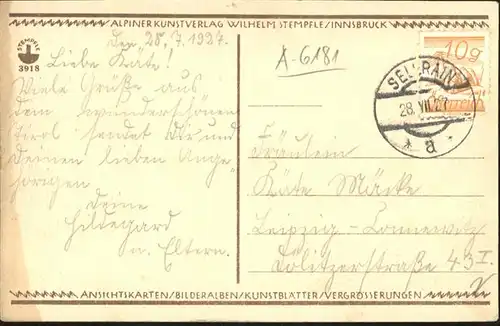 ALPINER KUNSTVERLAG WILHELM STEMPFLE/INNSBRUCK
STEMPFLE
3918
Den 28.7.1927.
Liebe Käte!
Viele Grüße aus
dem wunderschönen
Tirol sendet Dir und
Deinen lieben Ange-
hörigen
Deine
Hildegard
u. Eltern.
A-6181
10g
SELLRAIN
28.VII.27
* a *
Fräulein
Käte Märke
Leipzig-Connewitz
Dölitzerstraße 43 I.
ANSICHTSKARTEN/BILDERALBEN/KUNSTBLÄTTER/VERGRÖSSERUNGEN